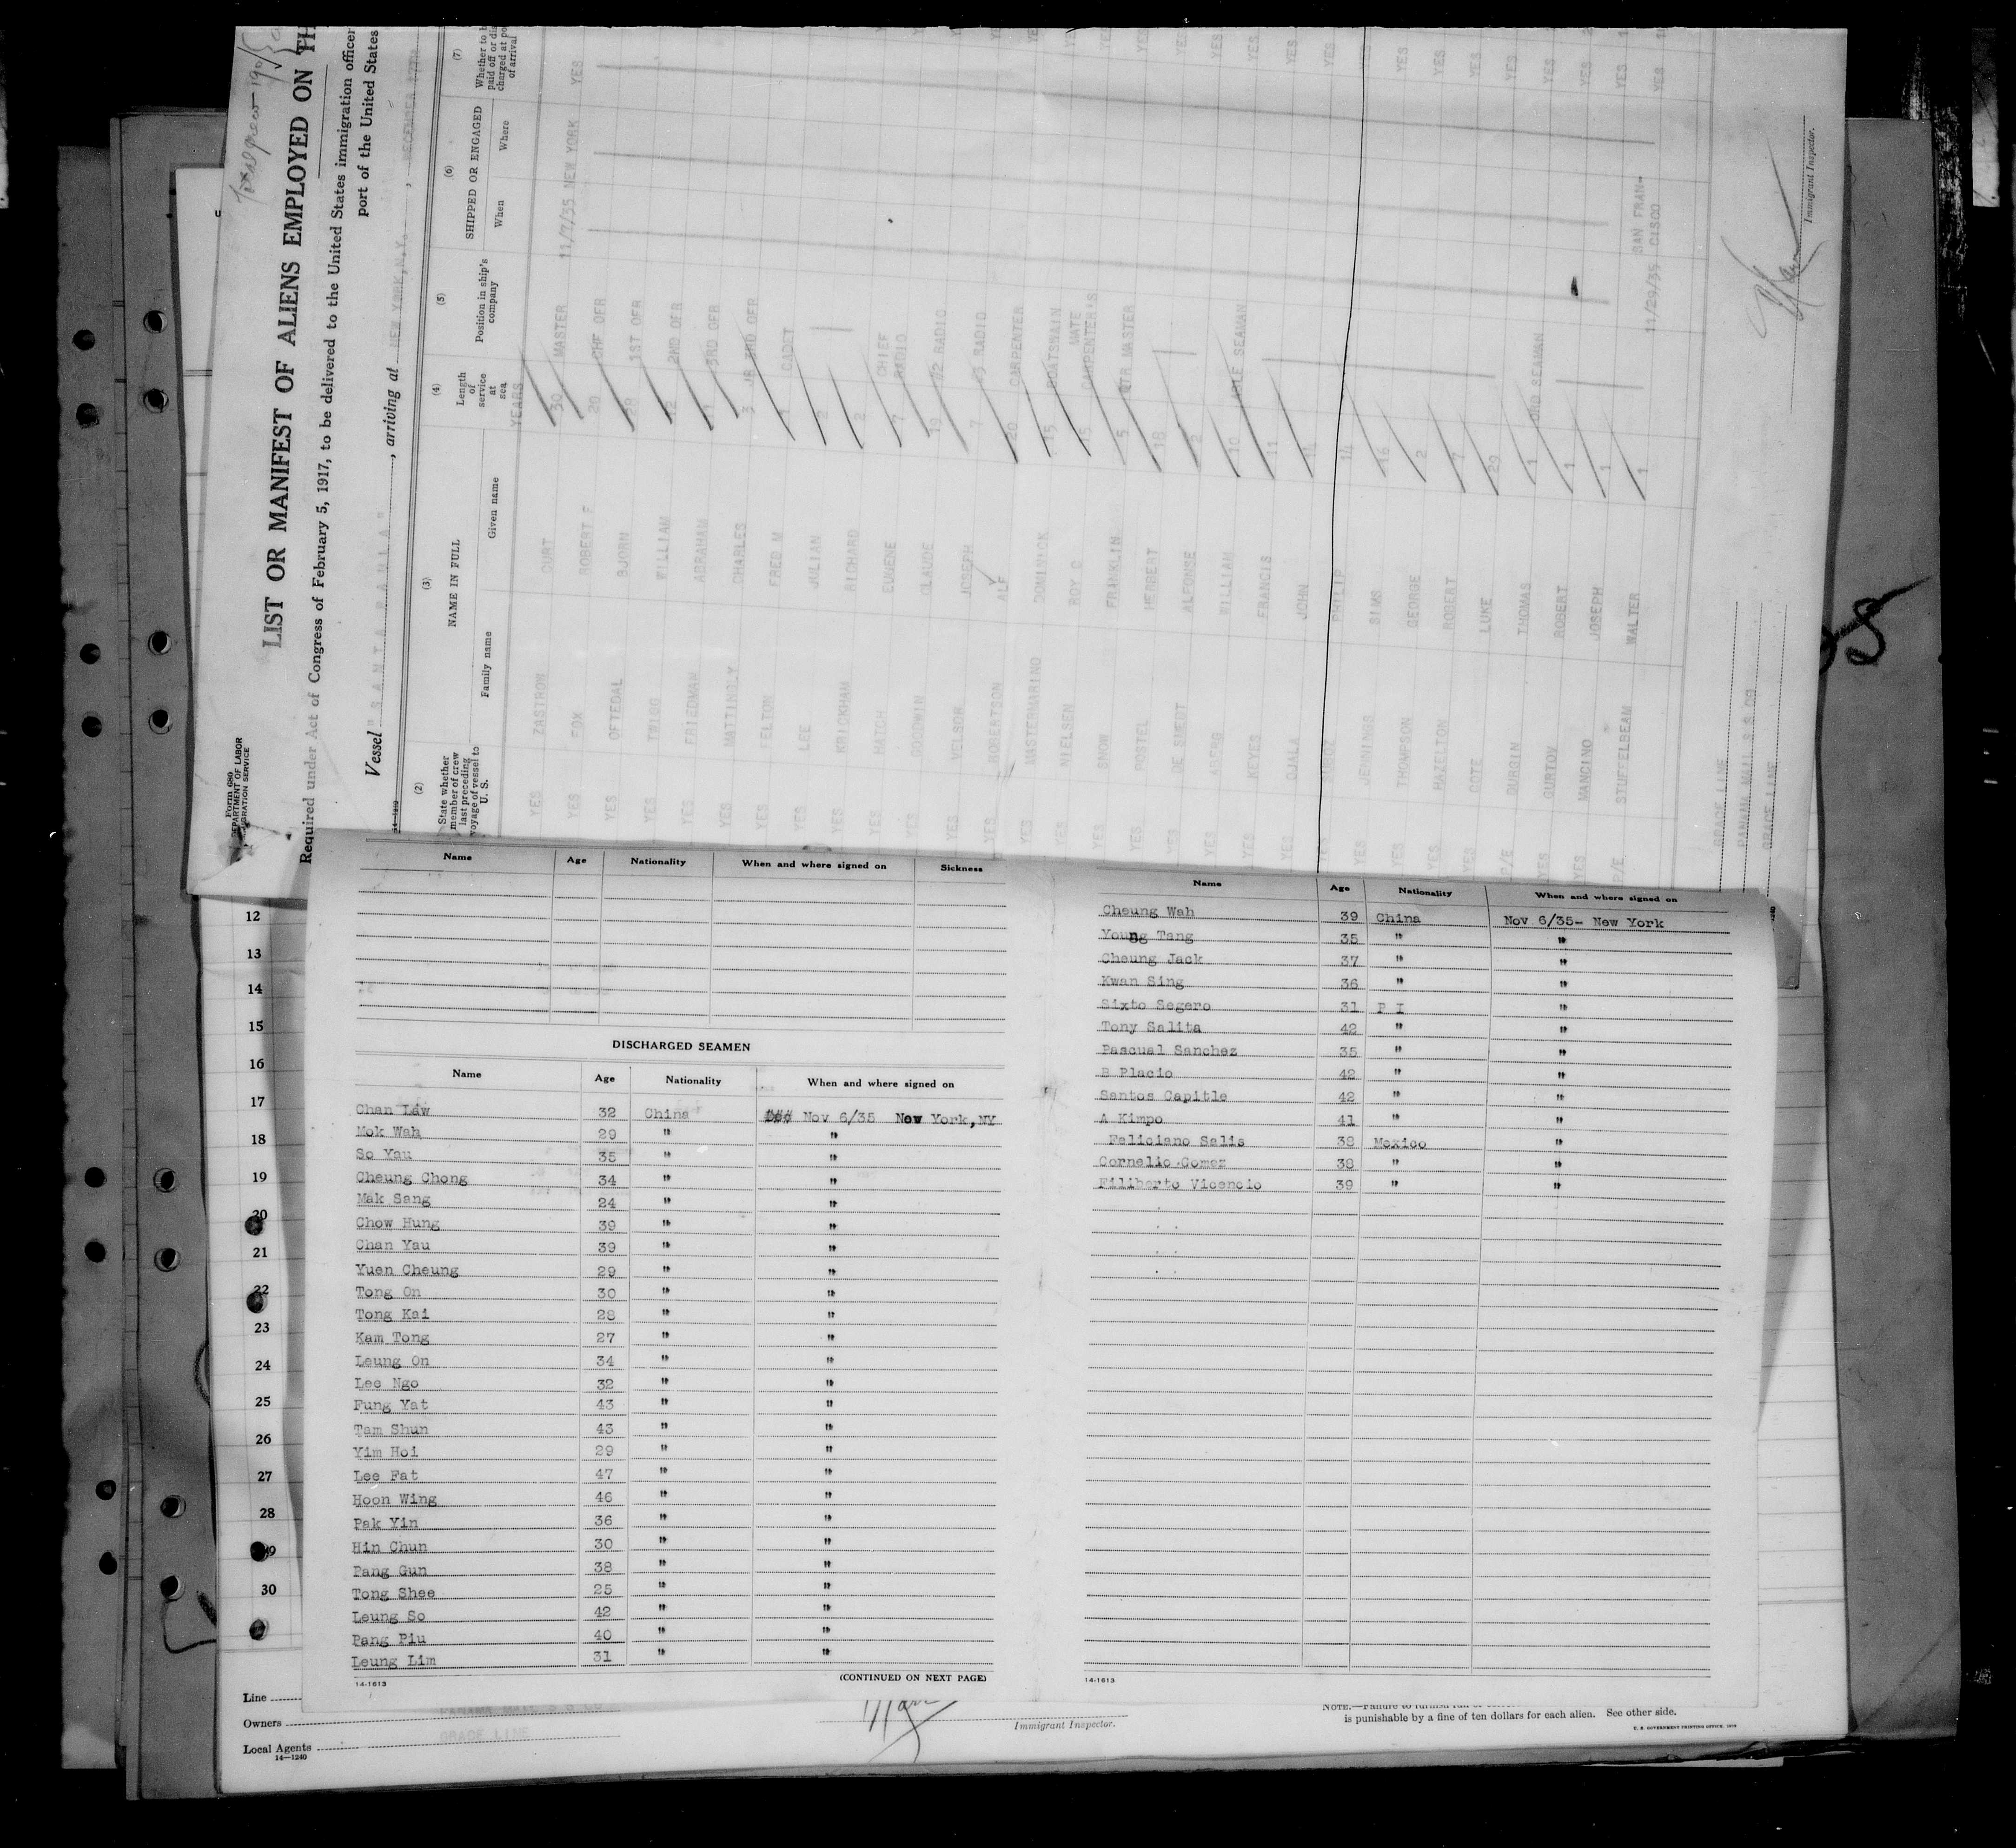 LIST OR MANIFEST OF ALIENS EMPLOYED ON TH
Required under Act of Congress of February 5, 1917, to be delivered to the United States immigration officer
port of the United States
Vessel "SANTA PAULA", arriving at NEW YORK, N.Y.,
Form 680
DEPARTMENT OF LABOR
IMMIGRATION SERVICE
(2) (3) (4) (5) (6) (7)
State whether member of crew last preceding voyage of vessel to U. S.
NAME IN FULL
Family name Given name
Length of service at sea
YEARS
Position in ship's company
SHIPPED OR ENGAGED
When Where
Whether to b
paid off or dis
charged at po
of arrival
YES ZASTROW CURT 30 MASTER 11/7/35 NEW YORK YES
YES FOX ROBERT F 20 CHF OFR
YES OFTEDAL BJORN 28 1ST OFR
YES TWIGG WILLIAM 12 2ND OFR
YES FRIEDMAN ABRAHAM 3RD OFR
YES MATTINGLY CHARLES 3 JR 3RD OFR
YES FELTON FRED M 1 CADET
YES LEE JULIAN 2
YES KRICKHAM RICHARD 2
YES HATCH EUGENE 7 CHIEF RADIO
YES GOODWIN CLAUDE 19 #2 RADIO
YES VELSOR JOSEPH 7 RADIO
YES ROBERTSON ALF 20 CARPENTER
YES MASTERMARINO DOMINICK 15 BOATSWAIN
YES NIELSEN ROY C 15 CARPENTER'S MATE
YES SNOW FRANKLIN 5 QTR MASTER
YES POSTEL HERBERT 18
YES DE SMEDT ALFONSE 2
YES ABERG WILLIAM 10 ABLE SEAMAN
YES KEYES FRANCIS 11
YES OJALA JOHN
PHILIP 14
YES JENNINGS SIMS 16
YES THOMPSON GEORGE 2
YES HAZELTON ROBERT 7
YES COTE LUKE 29
DURGIN THOMAS 1 ORD SEAMAN
YES GURTOV ROBERT 1
YES MANCINO JOSEPH 1
STUFFELBEAM WALTER 1 11/29/35 SAN FRAN-CISCO
GRACE LINE
PANAMA MAIL S S CO
GRACE LINE
Immigrant Inspector.
Name Age Nationality When and where signed on Sickness
DISCHARGED SEAMEN
Name Age Nationality When and where signed on
Chan Law 32 China Nov 6/35 New York,NY
Mok Wah 29 " "
So Yau 35 " "
Cheung Chong 34 " "
Mak Sang 24 " "
Chow Hung 39 " "
Chan Yau 39 " "
Yuen Cheung 29 " "
Tong On 30 " "
Tong Kai 28 " "
Kam Tong 27 " "
Leung On 34 " "
Lee Ngo 32 " "
Fung Yat 43 " "
Tam Shun 43 " "
Yim Hoi 29 " "
Lee Fat 47 " "
Hoon Wing 46 " "
Pak Yin 36 " "
Hin Chun 30 " "
Pang Gun 38 " "
Tong Shee 25 " "
Leung So 42 " "
Pang Piu 40 " "
Leung Lim 31 " "
14-1613
(CONTINUED ON NEXT PAGE)
Name Age Nationality When and where signed on
Cheung Wah 39 China Nov 6/35- New York
Young Tang 35 " "
Cheung Jack 37 " "
Kwan Sing 36 " "
Sixto Segero 31 P I "
Tony Salita 42 " "
Pascual Sanchez 35 " "
B Placio 42 " "
Santos Capitle 42 " "
A Kimpo 41 " "
Feliciano Salis 38 Mexico "
Cornelio Gomez 38 " "
Filiberto Vicencio 39 " "
14-1613
12
13
14
15
16
17
18
19
20
21
22
23
24
25
26
27
28
29
30
Line
Owners PANAMA MAIL S S CO
Local Agents GRACE LINE
14-1240
Immigrant Inspector.
NOTE.—Failure to furnish full
is punishable by a fine of ten dollars for each alien. See other side.
U. S. GOVERNMENT PRINTING OFFICE